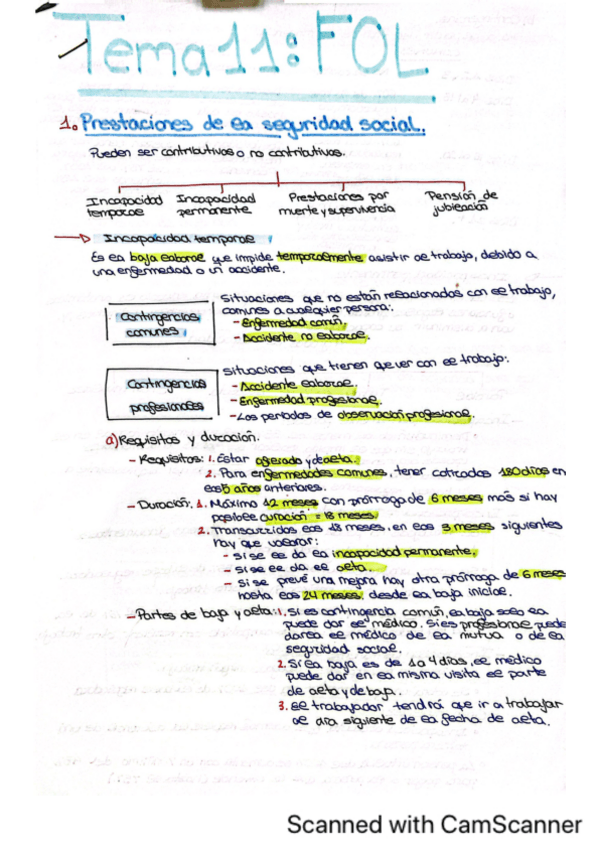 Tema 11: FOL
1. Prestaciones de la seguridad social.
Pueden ser contributivas o no contributivas.
Incapacidad temporal
Incapacidad permanente
Prestaciones por muerte y supervivencia
Pensión de jubilación
Incapacidad temporal
Es la baja laboral que impide temporalmente asistir al trabajo, debido a
una enfermedad o un accidente.
Contingencias comunes
Situaciones que no están relacionados con el trabajo,
comunes a cualquier persona:
- Enfermedad común.
- Accidente no laboral.
Contingencias profesionales
Situaciones que tienen que ver con el trabajo:
- Accidente laboral.
- Enfermedad profesional.
- Los periodos de observación profesional.
a) Requisitos y duración.
- Requisitos: 1. Estar afiliado y de alta.
2. Para enfermedades comunes, tener cotizados 180 días en
los 5 años anteriores.
- Duración: 1. Máximo 12 meses con prórroga de 6 meses más si hay
posible curación = 18 meses
2. Transcurridos los 18 meses, en los 3 meses siguientes
hay que valorar:
- si se le da la incapacidad permanente.
- si se le da el alta.
- si se prevé una mejora hay otra prórroga de 6 meses
hasta los 24 meses desde la baja inicial.
- Partes de baja y alta: 1. Si es contingencia común, la baja solo la
puede dar el médico. Si es profesional puede
darla el médico de la mutua o de la
seguridad social.
2. Si la baja es de 1 a 4 días, el médico
puede dar en la misma visita el parte
de alta y de baja.
3. El trabajador tendrá que ir a trabajar
al día siguiente de la fecha de alta.
Scanned with CamScanner